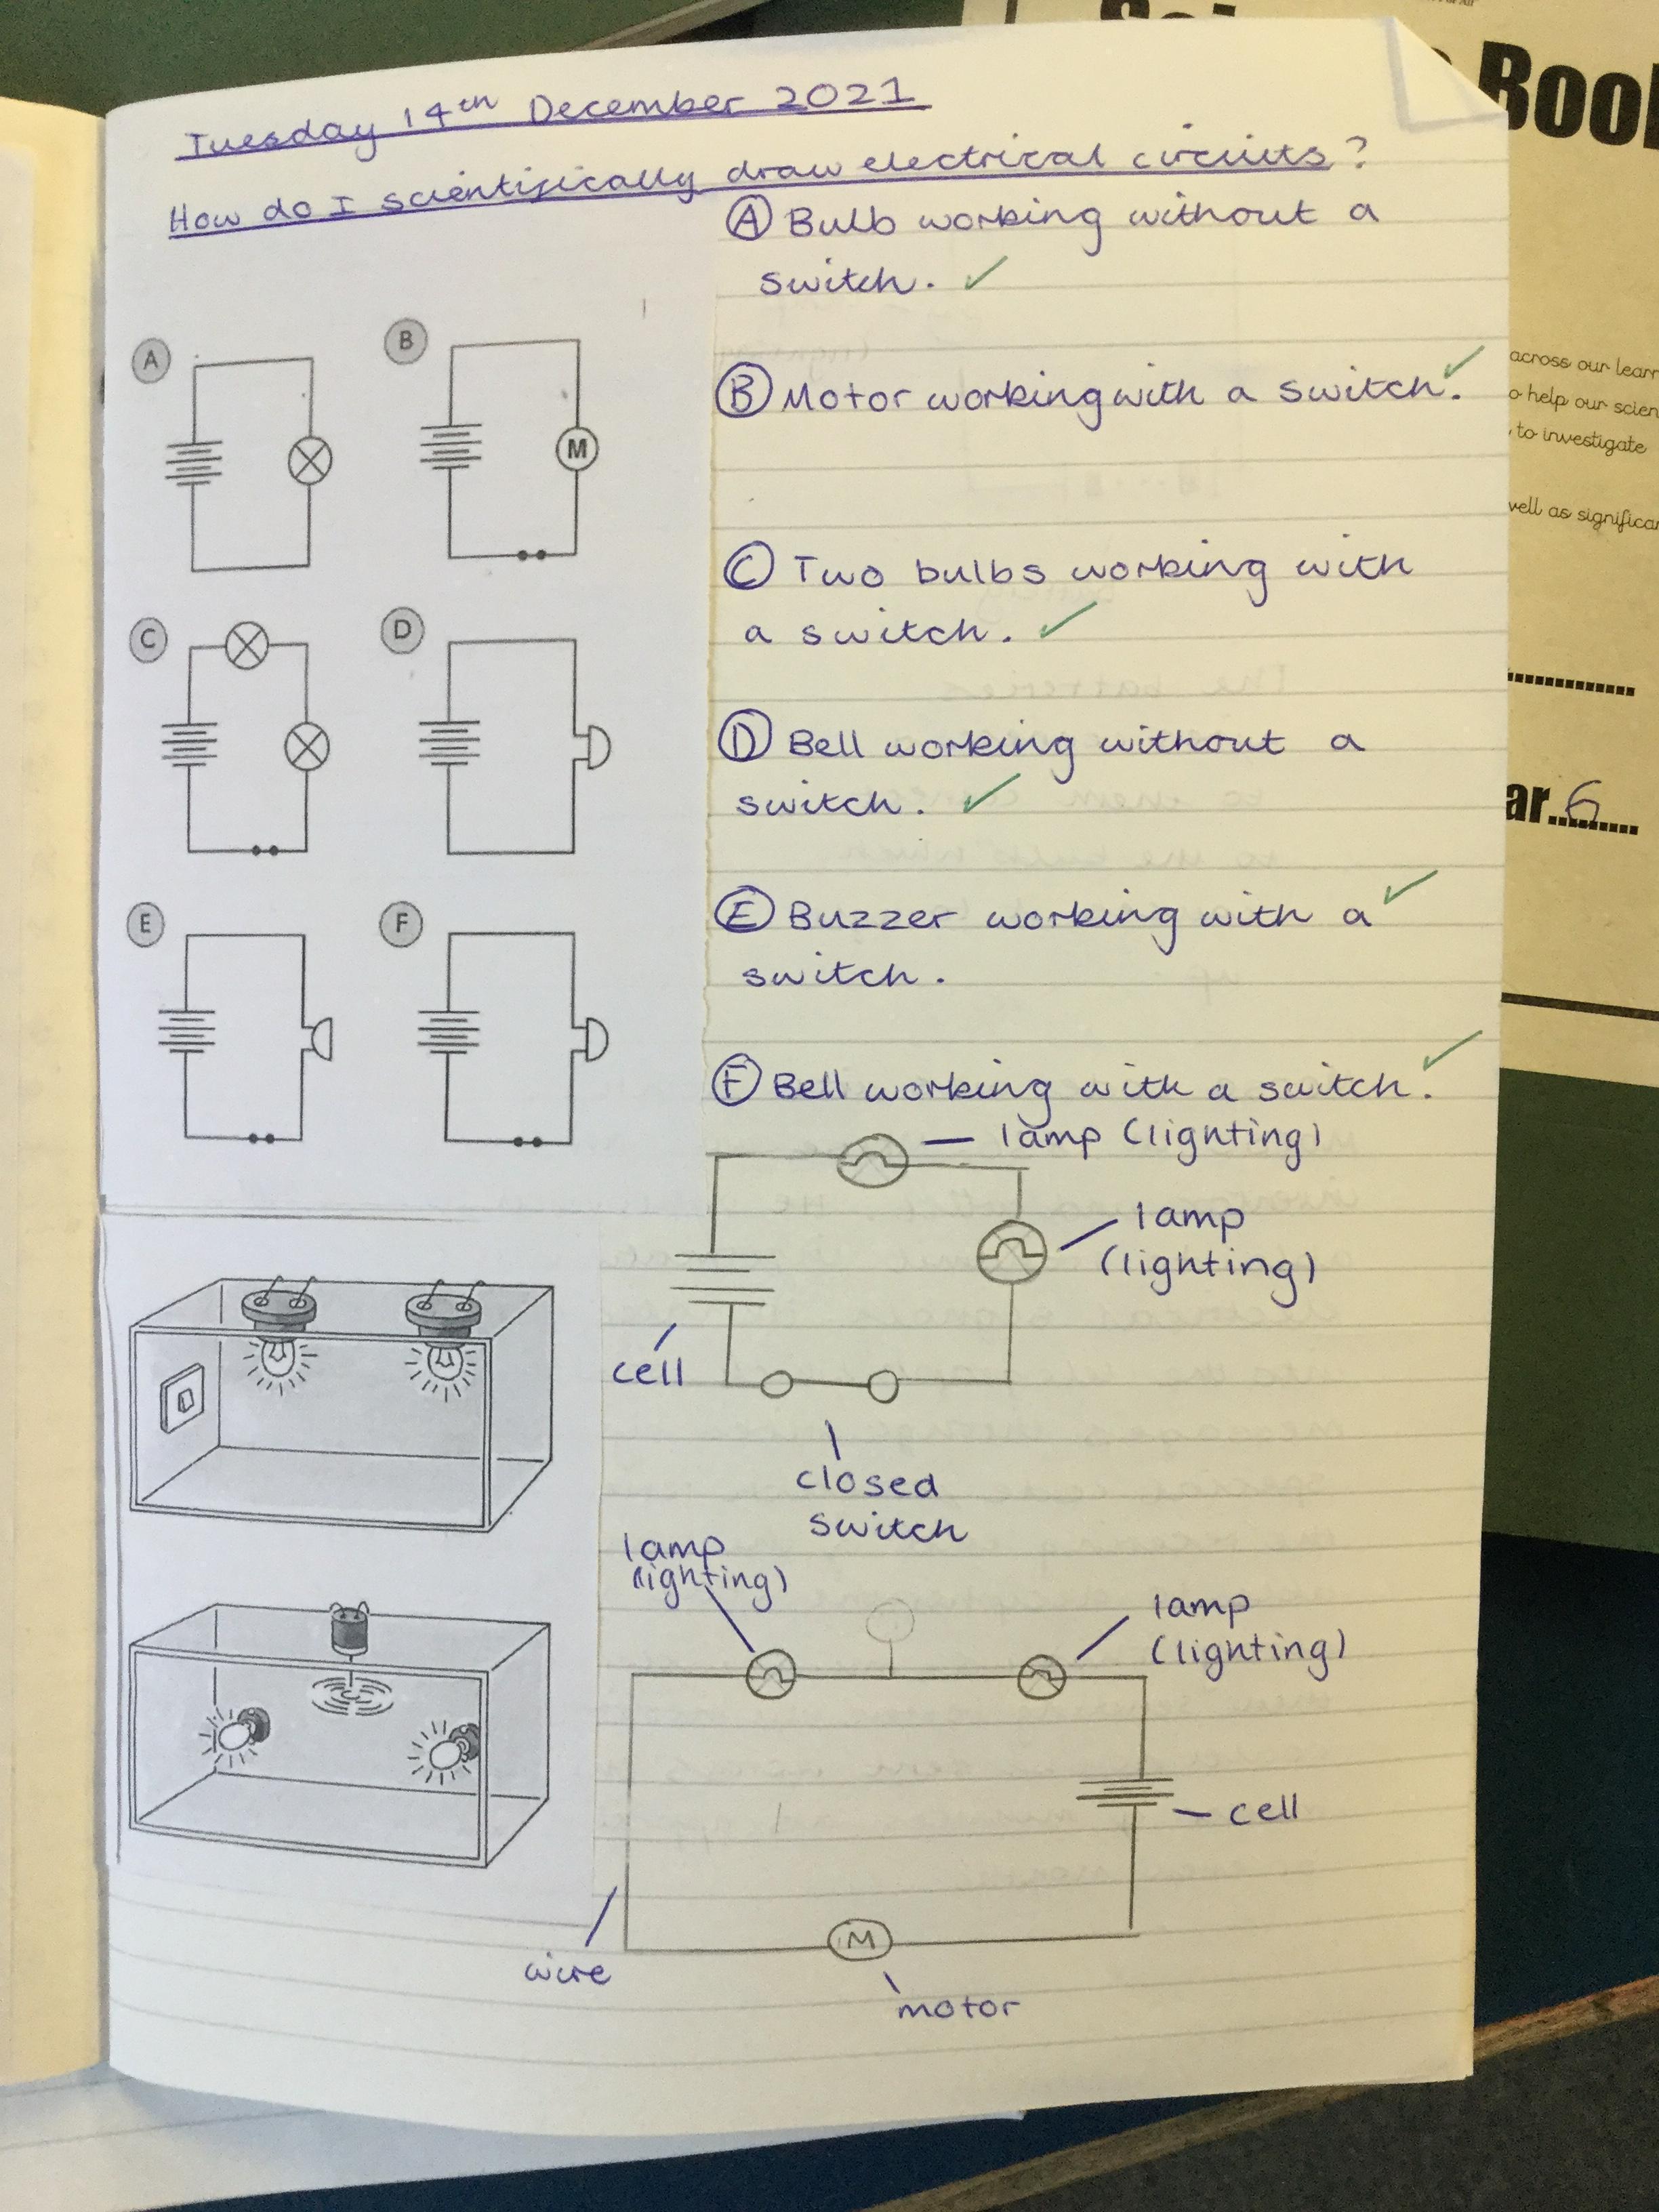 Tuesday 14th December 2021
How do I scientifically draw electrical circuits?
A Bulb working without a
switch.
B Motor working with a switch.
C Two bulbs working with
a switch.
D Bell working without a
switch.
E Buzzer working with a
switch.
F Bell working with a switch.
A
B
M
C
D
E
F
lamp (lighting)
lamp
(lighting)
cell
closed
switch
lamp
(lighting)
lamp
(lighting)
cell
wire
M
motor
Book
across our learn
to help our scien
to investigate
well as significan
ar 6